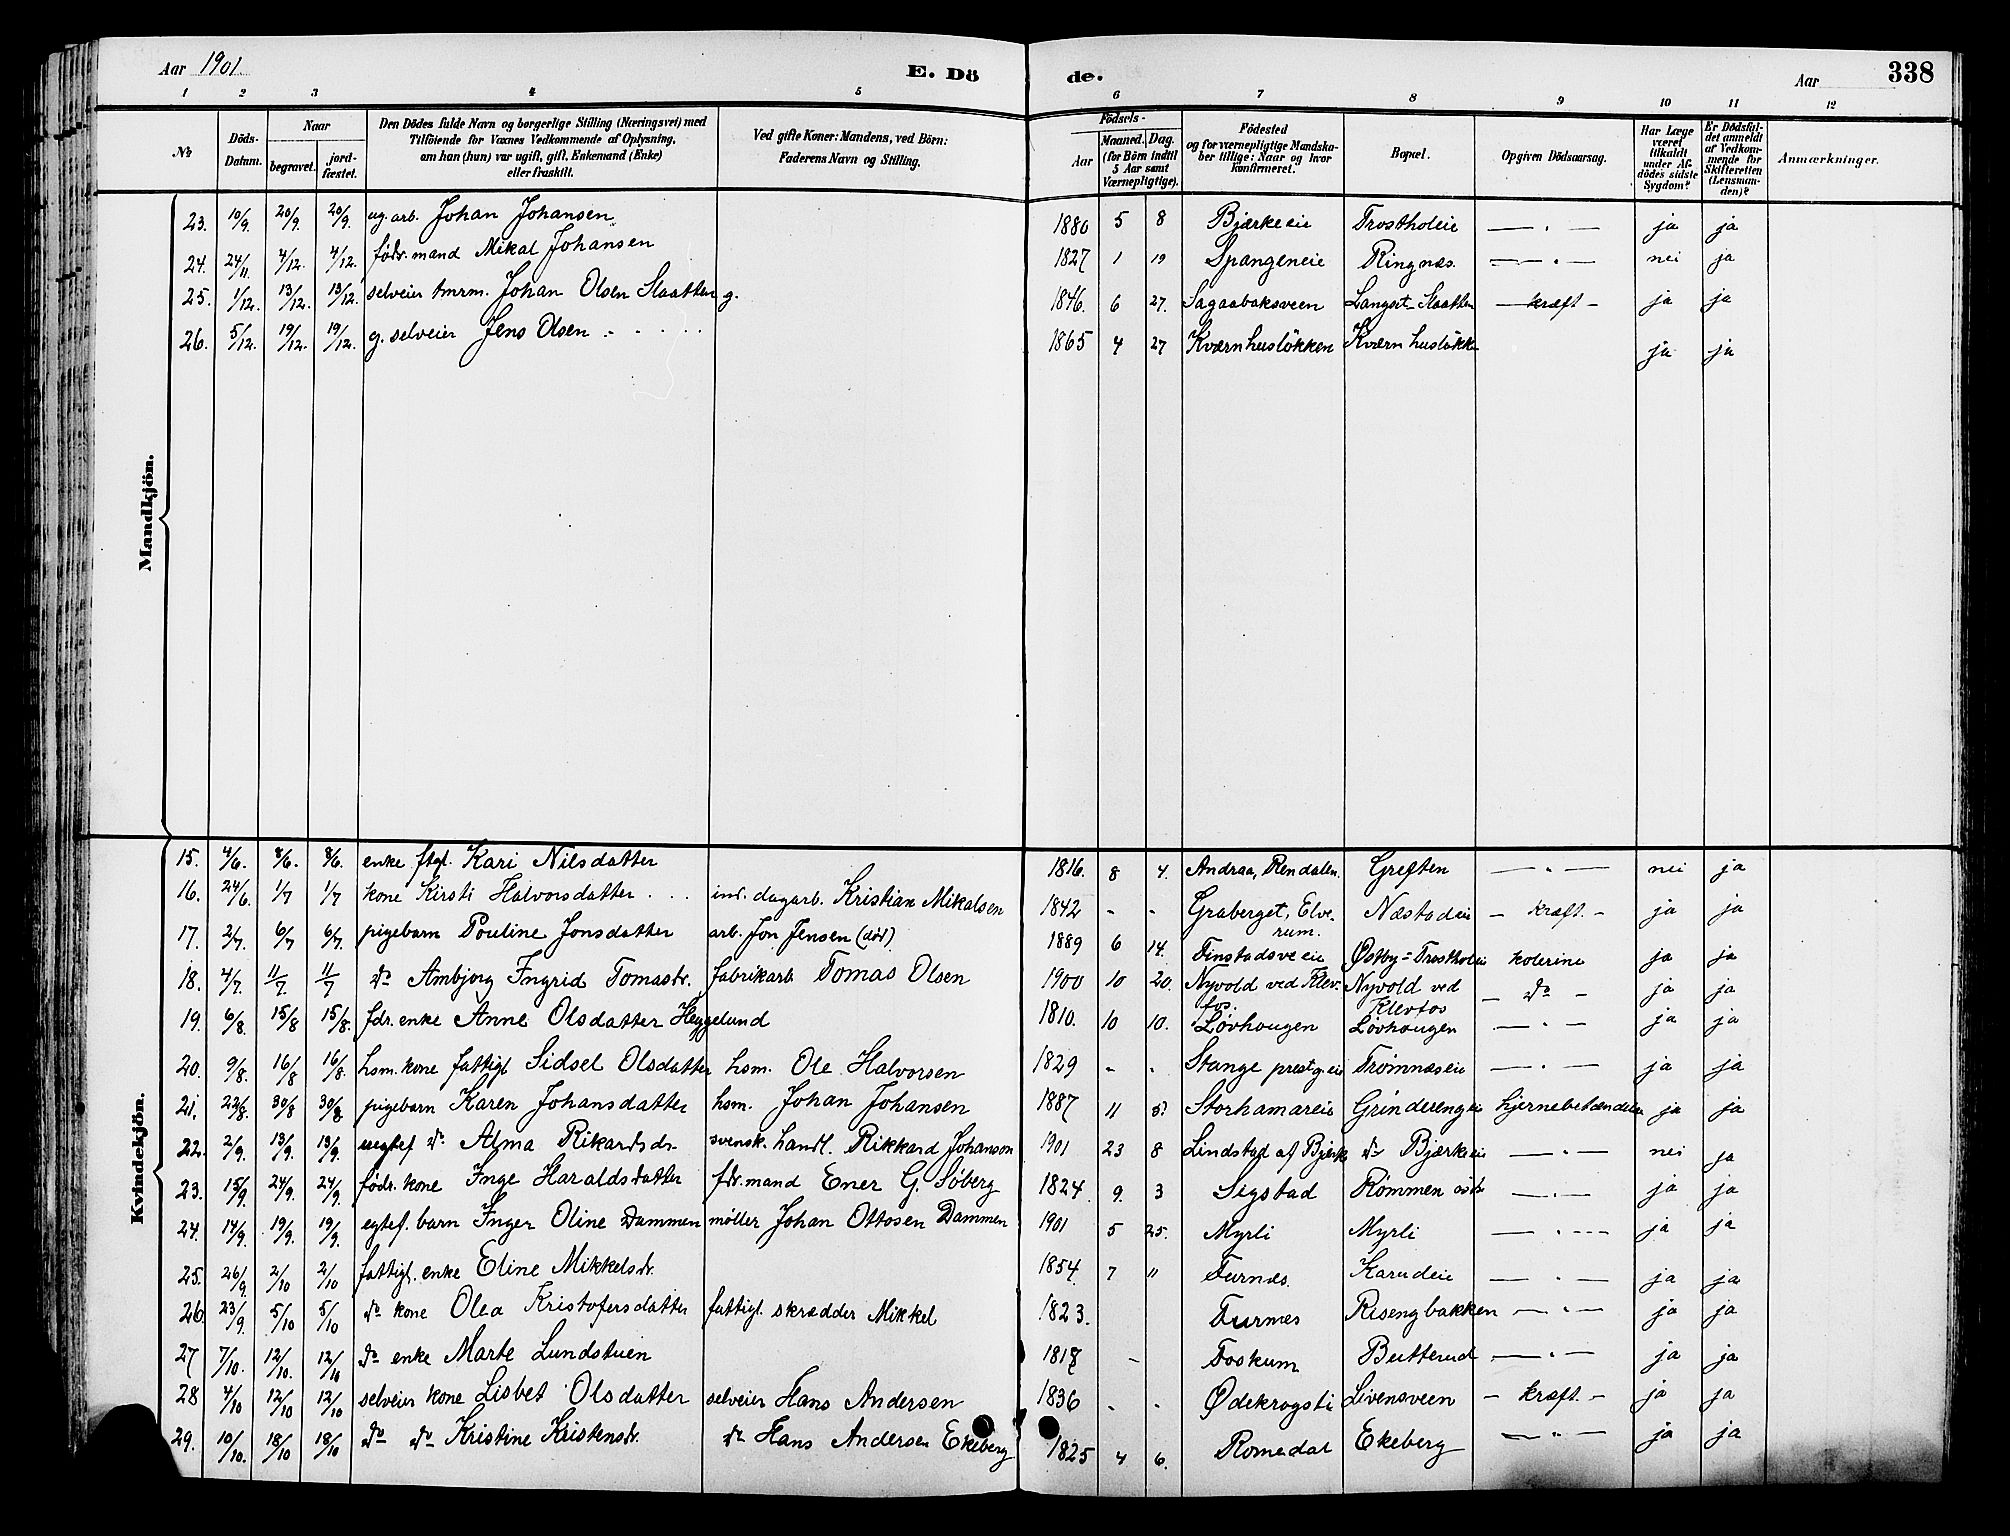 Aar 1901. E. Dö de. Aar 338
1 2 3 4 5 6 7 8 9 10 11 12
No. Döds-Datum. Naar begravet. jord-fæstet. Den Dödes fulde Navn og borgerlige Stilling (Næringsvei) med Tilföiende for Voxnes Vedkommende af Oplysning, om han (hun) var ugift, gift, Enkemand (Enke) eller fraskilt. Ved gifte Koner: Mandens, ved Börn: Faderens Navn og Stilling. Födsels- Aar Maaned. Dag. (for Börn indtil 5 Aar samt Værnepligtige). Födested og for værnepligtige Mandskaber tillige: Naar og hvor konfirmeret. Bopæl. Opgiven Dödsaarsag. Har Læge været tilkaldt under Afdödes sidste Sygdom? Er Dödsfaldet anmeldt af Vedkommende for Skifteretten (Lensmanden)? Anmærkninger.
Mandkjön.
23. 10/9. 20/9. 20/9. ug. arb. Johan Johansen 1880 5 8 Bjærkeeie Trostholeie — " — ja ja
24. 24/11. 4/12. 4/12. födr. mand Mikal Johansen 1827 1 19 Spangeneie Ringnæs. — " — nei ja
25. 1/12. 13/12. 13/12. selveier tmrm. Johan Olsen Slaatten g. 1846. 6 27. Sagaabaksveen Langset-Slaatten — kræft — ja ja
26. 5/12. 19/12. 19/12. g. selveier Jens Olsen 1865 4 27 Kværnhusløkken Kværnhusløkk ja ja
Kvindekjön.
15. 4/6. 8/6. 8/6. enke ftgl. Kari Nilsdatter 1816. 8 4. Andraa, Rendalen. Greften — " — nei ja
16. 24/6. 1/7 1/7 kone Kirsti Halvorsdatter ind. dagarb. Kristian Mikalsen 1842 - - Graberget, Elverum. Næstadeie — kræft. — ja ja
17. 2/7. 6/7 6/7. pigebarn Pouline Jonsdatter arb. Jon Jensen (död) 1889 6 14. Finstadsveeie Østby=Trostholeie kolerine ja ja
18. 4/7. 11/7. 11/7 do Ambjorg Ingrid Tomasdr. fabrikarb Tomas Olsen 1900 10 20. Nyvold ved Klevfos. Nyvold ved Klevfos — do — ja ja
19. 6/8. 15/8 15/8. fdr. enke Anne Olsdatter Heggelund 1810. 10 10. Løvhaugen Løvhaugen — " — ja ja
20. 9/8. 16/8 16/8. hsm. kone fattigl Sidsel Olsdatter hsm. Ole Halvorsen 1829 - - Stange prestg.eie Trømnæseie — " — ja ja
21. 22/8. 30/8 30/8 pigebarn Karen Johansdatter hsm. Johan Johansen 1887 11 5. Storhamareie Grinderengeie hjernebetændelse ja ja
22. 2/9. 13/9. 13/9. uegtef do Alma Rikardsdr. svensk. handl. Rikkard Johanson 1901 23 8 Lindstad af Bjerk do Bjærkeeie — " — nei ja
23. 15/9. 24/9. 24/9. födr. kone Inge Haraldsdatter fdr. mand Ener G. Söberg 1824. 9. 3 Sigstad Rømmen — " — ja ja
24. 14/9. 19/9. 19/9. egtef. barn Inger Oline Dammen møller Johan Ottosen Dammen 1901 5 25. Myrli Myrli — " — ja ja
25. 26/9. 2/10 2/10 fattigl. enke Eline Mikkelsdr. 1854. 7 " Furnæs. Karudeie — " — ja ja
26. 23/9. 5/10 5/10 do kone Olea Kristofersdatter fattigl. skrædder Mikkel 1823. Furnes Risengbakken — " — ja ja
27 7/10. 12/10. 12/10 do enke Marte Lundstuen 1817 - Foskum Butterud — " — ja ja
28 4/10 12/10 12/10 selveier kone Lisbet Olsdatter selveier Hans Andersen 1836 - - Ødekrogsti Livensveen — kræft. — ja ja
29. 10/10. 18/10 18/10 do do Kristine Kristensdr. do Hans Andersen Ekeberg 1825 4 6. Romedal Ekeberg — " — ja ja